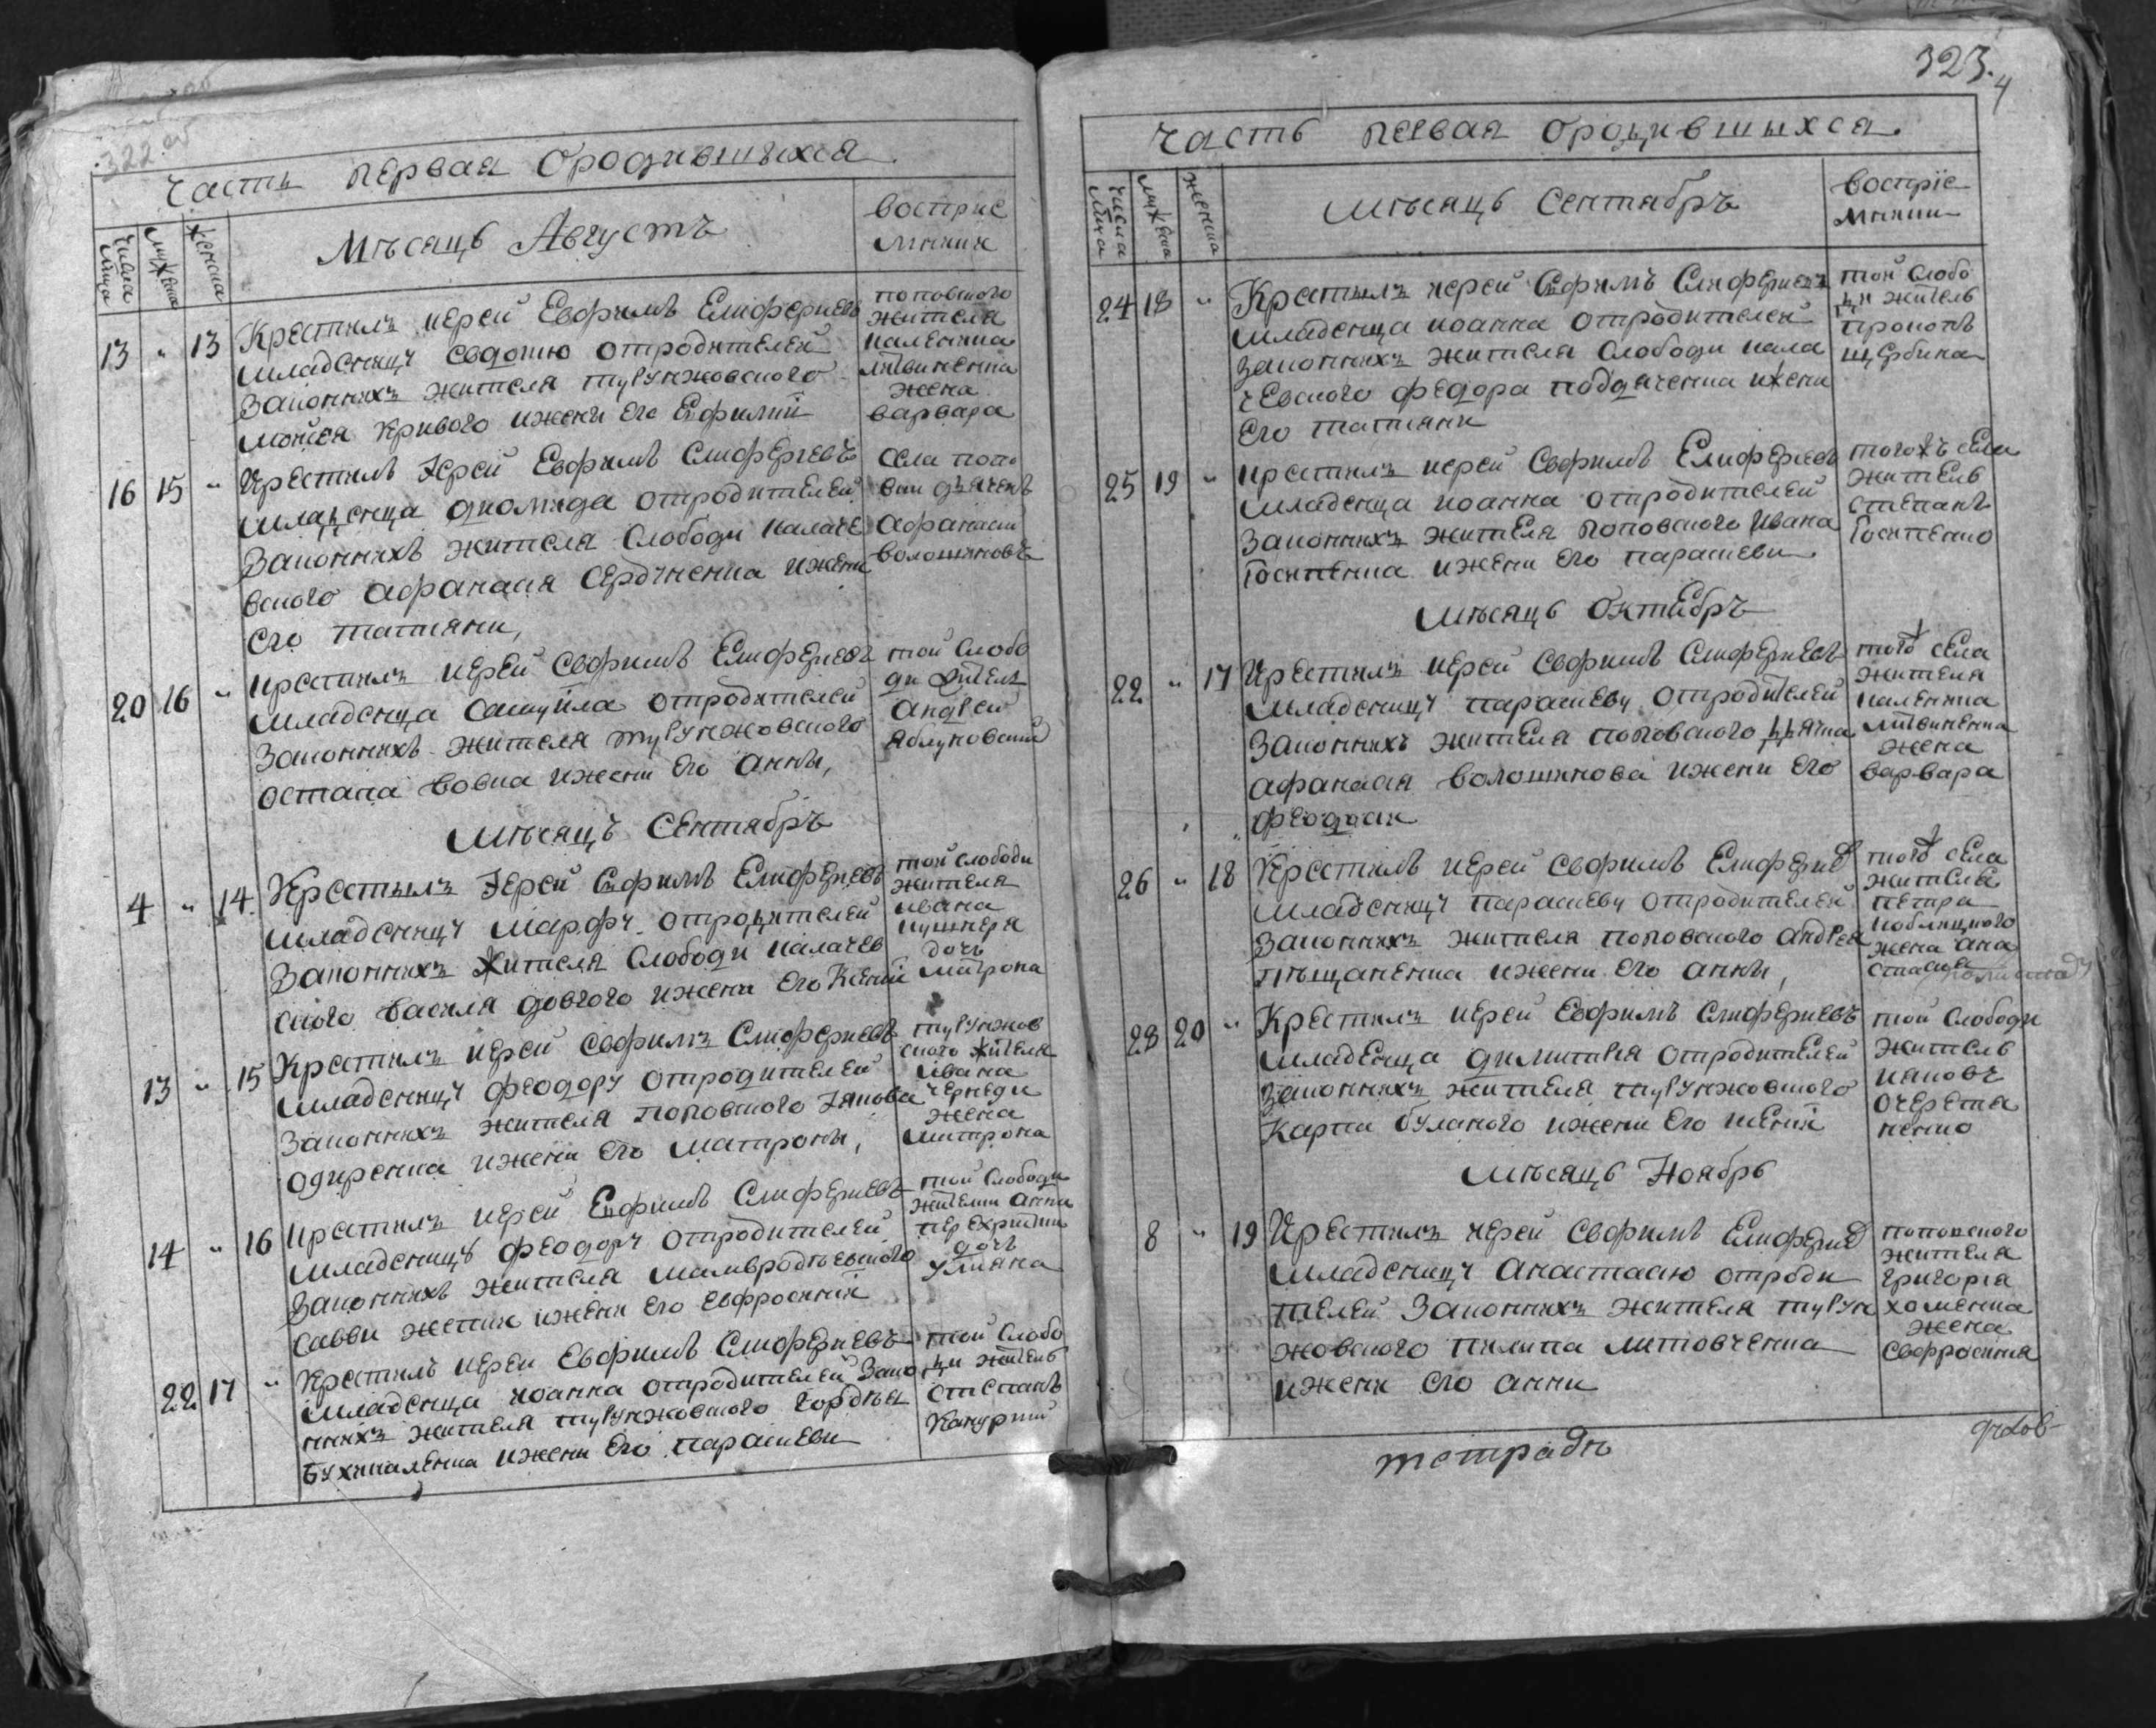 322 об
Часть первая ородившихся.
числа мца
мужеска
женска
Мѣсяцъ Августъ
восприе
мники
13 " 13 Крестилъ иерей Евфимъ Елифериевъ
младеницу Евдокию отродителей
законныхъ жителя турунжовского
Мойсея Кривого ижены Его Евфимии
поповского
жителя
калѣника
литвиненка
жена
варвара
16 15 " Крестилъ Іерей Евфимъ Елиферіевъ
младенца диомида отродителей
законныхъ жителя Слободи калаче
вского афанасия Сердиненка ижени
Его татияни,
Села попо
вки дьяченъ
афанасий
волошиновъ
20 16 " крестилъ иерей Евфимъ Елифериевъ
младенца Самуйла отродителей
законныхъ жителя турунжовского
остапа вовка ижени Его анны,
той Слобо
ди житель
андрей
яблуновский
мѣсяцъ Сентябръ
4 " 14 Крестилъ Іерей Евфимъ Елифериевъ
младеницу марфу отродителей
законныхъ жителя Слободи калачев
ского василя довгого ижени Его Ксении
той слободи
жителя
ивана
кушнѣра
дочь
матрона
13 " 15 Крестилъ иерей Евфимъ Елифериевъ
младеницу феодору отродителей
законныхъ жителя поповского Іакова
одиренка ижени Его матрони,
турунжов
ского жителя
ивана
чернеди
жена
митрона
14 " 16 Крестилъ иерей Евфимъ Елифериевъ
младеницу феодору отродителей
законныхъ жителя мамвродиевского
Савви ижени Его Евфросинии
той Слободи
жителки анни
дочь
улияна
22 17 " Крестилъ иерей Евфимъ Елифериевъ
младенца иоанна отродителей Зако
нныхъ жителя турунжовского гордѣя
Бухкаленка ижени Его парасковеи
той Слобо
ди житель
Степанъ
323.
4
Часть первая ородившихся.
числа мца
мужеска
женска
мѣсяцъ Сентябръ
воспріе
мники
24 18 " Крестилъ иерей Евфимъ Елифериевъ
младенца иоанна отродителей
законныхъ жителя Слободи кала
чевского федора поддяченка ижени
Его татияни
той Слобо
ди житель
прокопъ
щербина
25 19 " крестилъ иерей Евфимъ Елифериевъ
младенца иоанна отродителей
законныхъ жителя поповского Ивана
Госитенка ижени Его параскеви
тогожъ села
житель
Степанъ
Госитенко
мѣсяцъ Октебръ
22 " 17 Крестилъ иерей Евфимъ Елифериевъ
младеницу параскеву отродителей
законныхъ жителя поповского дьячка
афанасия волошинова ижени Его
феодосии
тогож села
жителя
калѣника
литвиненка
жена
варвара
26 " 18 Крестилъ иерей Евфимъ Елифериев
младеницу параскеву отродителей
законныхъ жителя поповского андрея
пѣщаненка ижени Его анни,
тогож села
жителя
петра
коблицкого
жена ана
28 20 " Крестилъ иерей Евфимъ Елифериевъ
младенца димитрія отродителей
законныхъ жителя турунжовского
Карпа буланого ижени Его ксении
той Слободи
житель
иаковъ
очерета
ненко
мѣсяцъ Ноябръ
8 " 19 Крестилъ иерей Евфимъ Елифериев
младеницу анастасию отроди
телей законныхъ жителя турун
жовского пилипа литовченка
ижени Его анни
поповского
жителя
григория
хоменка
жена
Евфросиния
тетрадь